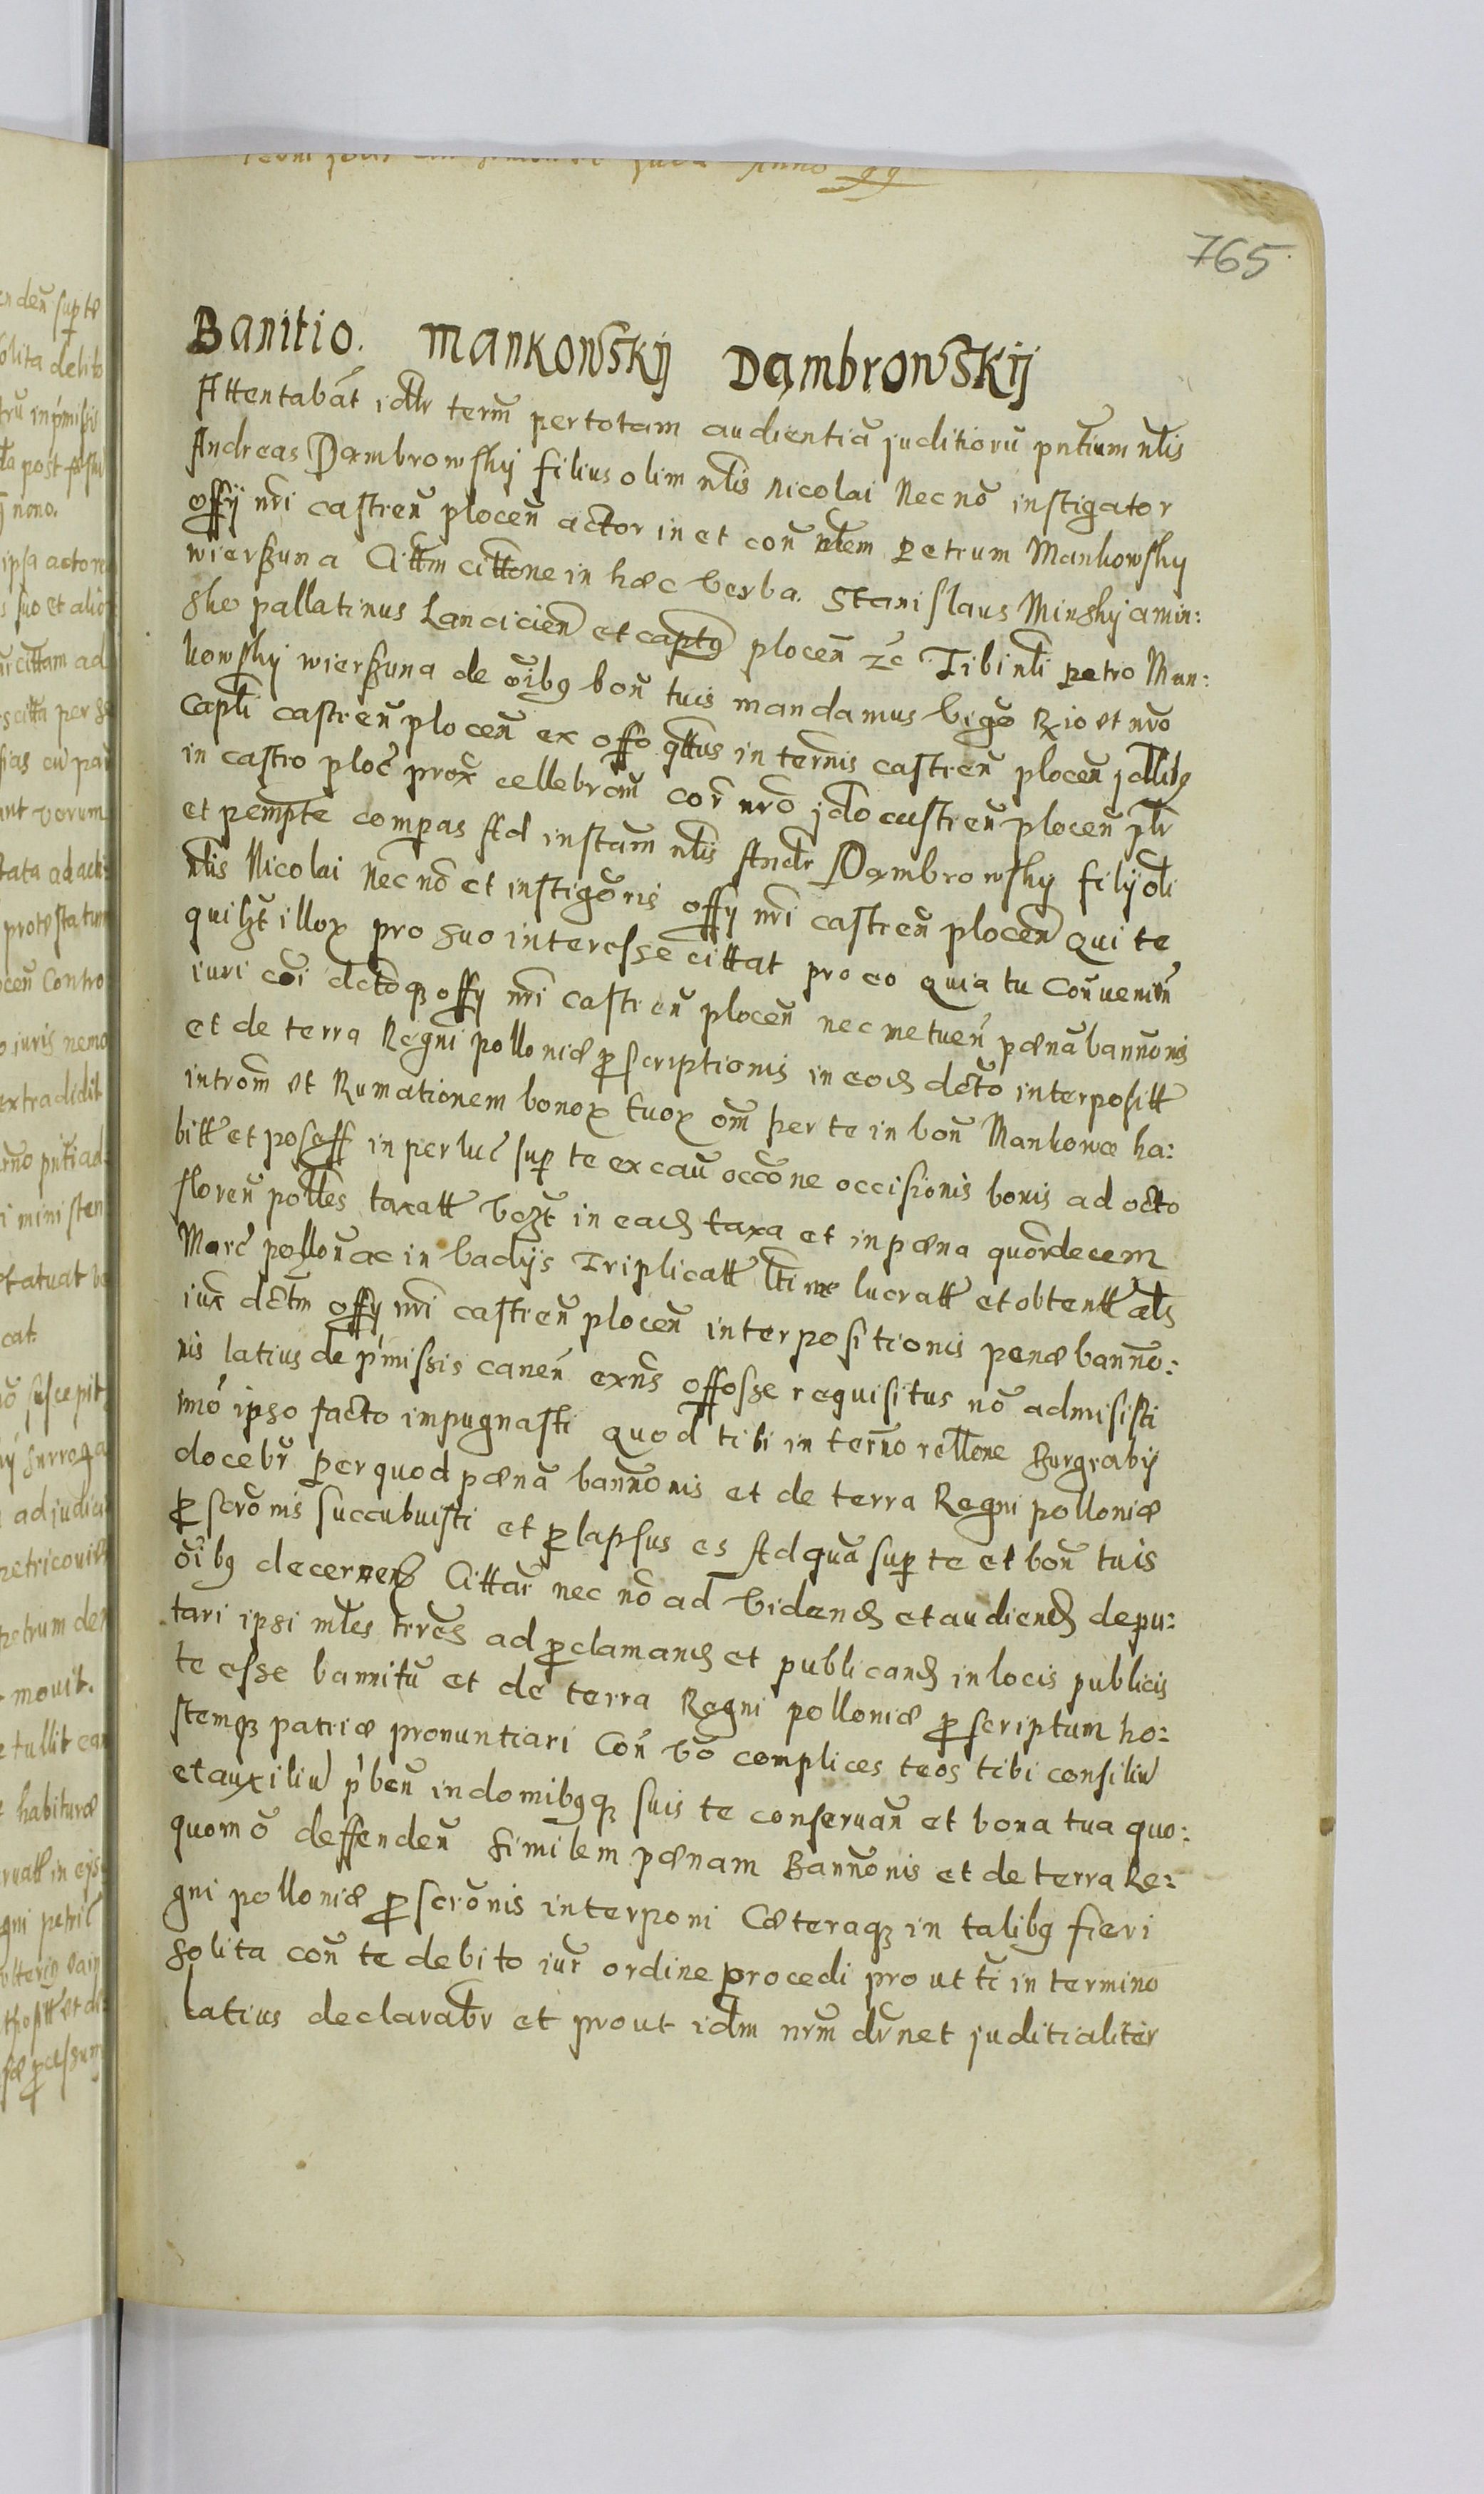 765
Banitio. Mankowskij Dąmbrowskij
Attentabāt idlr term̄ per totam audientiā juditiorū pn̄tium nl̄is
Andreas Dambrowskij filius olim nl̄is Nicolai Nec nō instigator
offij nr̄i castren̄ plocen̄ actor in et con̄ nl̄em Petrum Mankowsky
wierszuna Citt̄m citt̄one in hæc verba. Stanislaus Minskyj a min:
sko pallatinus Lancicien̄ et captꝰ plocen̄ ꝛc̄ Tibi nl̄i petro Man:
kowskij wierszuna de oībꝰ bon̄ tuis mandamus vigō Rio et nr̄o
Caplī castren̄ plocen̄ ex offo qtt̄us in tern̄is castren̄ plocen̄ jdl̄ibꝰ
in castro ploc̄ prox̄ cellebran̄ cor̄ nr̄o jdō castren̄ plocen̄ plr̄
et pemp̄te comp̄as Ad instam̄ nl̄is Andr̄ Dąmbrowsky filij oli
nl̄is Nicolai Nec nō et instigōris offij nr̄i castren̄ plocen̄ qui te
quilꝫt illoꝝ pro suo interesse cittat pro eo quia tu Con̄venien̄
iuri cōi dctōqꝫ offij nr̄i castren̄ plocen̄ nec metuen̄ pænā bann̄onis
et de terra Regni polloniæ ꝓscriptionis in eod̄ dctō interposītt
introm̄ et Rumationem bonoꝝ tuoꝝ om̄ per te in bon̄ Mankowo ha:
bitt et posess̄ in perluc̄ sup̄ te ex cau̅ occōne occisionis bovis ad octo
floren̄ poll̄es taxatt vꝫt in ead̄ taxa et in pæna quor̄decem
Marc̄ pollon̄ ac in vadijs Triplicatt ltīme lucratt et obtentt als
iux̄ dctm̄ offij nr̄i castren̄ plocen̄ interpositionis penæ bann̄o:
nis latius de p̄missis canen̄ exn̄s offosse requisitus nō admisisti
imo ipso facto impugnasti quod tibi in ter̄no rell̄one Burgrabij
docebr̄ Per quod pænā bann̄onis et de terra Regni polloniæ
ꝓscrōnis succubuisti et ꝓlapsus es Ad quā sup̄ te et bon̄ tuis
oībꝰ decernend̄ Cittar̄ nec nō ad videnđ et audienđ depu:
tari ipsi ml̄es trr̄es ad ꝓclamanđ et publicanđ in locis publicis
te esse bannitū et de terra Regni polloniæ ꝓscriptum ho:
stemqꝫ patriæ pronuntiari Con̄ vō complices teos tibi consiliū
et auxiliū p̄ben̄ in domibꝰqꝫ suis te conservan̄ et bona tua quo:
quomō deffenden̄ similem pænam Bann̄onis et de terra Re:
gni polloniæ ꝓscrōnis interponi Cæteraqꝫ in talibꝰ fieri
solita con̄ te debito iur̄ ordine procedi prout tī in termino
latius declarabr̄ et prout idm̄ nrm̄ dr̄net juditialiter